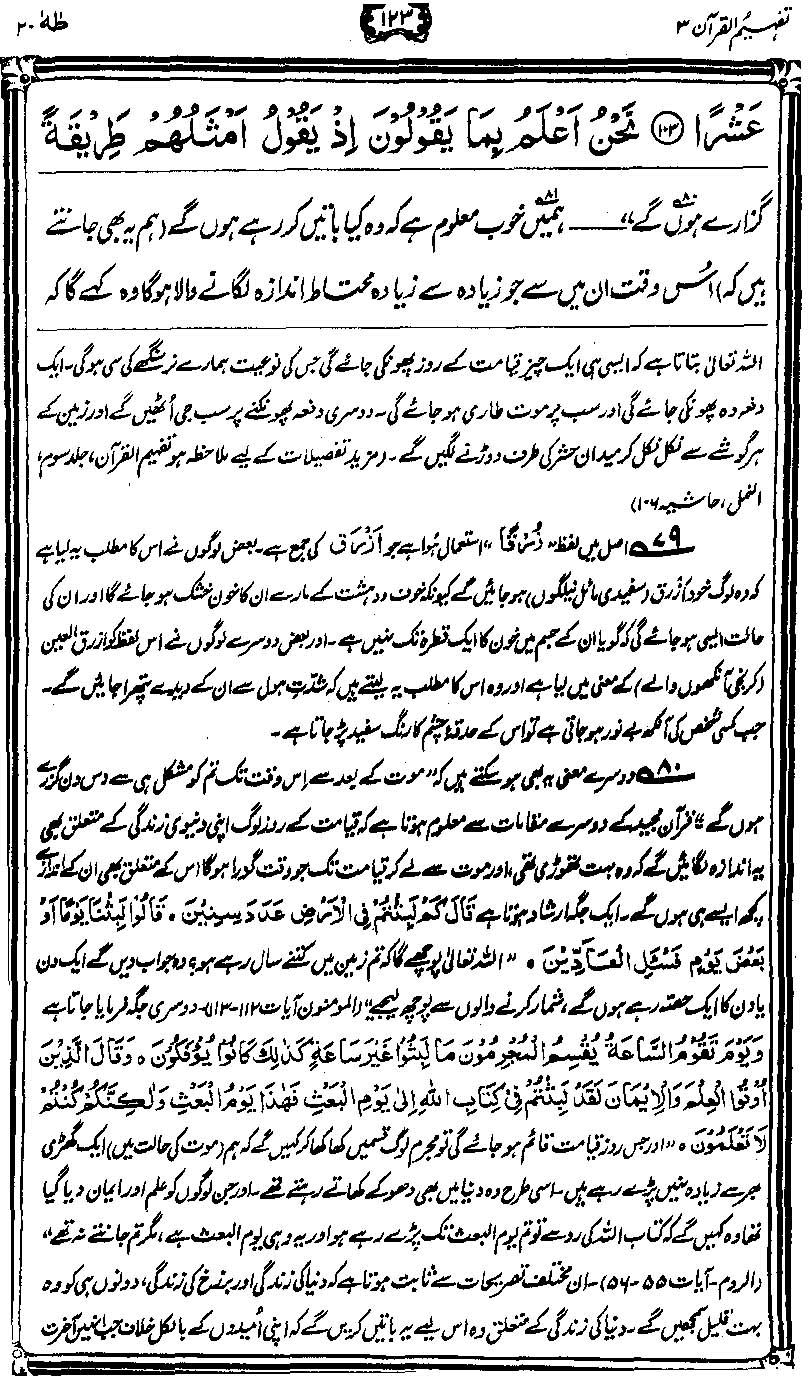 تفہیم القرآن ۳
۱۲۳
طٰهٰ ۲۰
عَشْرًا ۝۱۰۳ نَحْنُ اَعْلَمُ بِمَا يَقُوْلُوْنَ اِذْ يَقُوْلُ اَمْثَلُهُمْ طَرِيْقَةً
گزارے ہوں گے"۸۰ ــــــ ہمیں۸۱ خوب معلوم ہے کہ وہ کیا باتیں کر رہے ہوں گے (ہم یہ بھی جانتے
ہیں کہ) اُس وقت ان میں سے جو زیادہ سے زیادہ محتاط اندازہ لگانے والا ہوگا وہ کہے گا کہ
اللہ تعالیٰ بتاتا ہے کہ ایسی ہی ایک چیز قیامت کے روز پھونکی جائے گی جس کی نوعیت ہمارے نرسنگھے کی سی ہوگی۔ ایک
دفعہ وہ پھونکی جائے گی اور سب پر موت طاری ہو جائے گی۔ دوسری دفعہ پھونکنے پر سب جی اُٹھیں گے اور زمین کے
ہر گوشے سے نکل نکل کر میدان حشر کی طرف دوڑنے لگیں گے۔ (مزید تفصیلات کے لیے ملاحظہ ہو تفہیم القرآن، جلد سوم،
النمل، حاشیہ ۱۰۶)
۷۹ اصل میں لفظ "زُرْقًا" استعمال ہُوا ہے جو اَزْرَق کی جمع ہے۔ بعض لوگوں نے اس کا مطلب یہ لیا ہے
کہ وہ لوگ خود اَزرق (سفیدی مائل نیلگوں) ہو جائیں گے کیونکہ خوف و دہشت کے مارے ان کا خون خشک ہو جائے گا اور ان کی
حالت ایسی ہو جائے گی کہ گویا ان کے جسم میں خون کا ایک قطرہ تک نہیں ہے۔ اور بعض دوسرے لوگوں نے اس لفظ کو ازرق العین
(کرنجی آنکھوں والے) کے معنی میں لیا ہے اور وہ اس کا مطلب یہ لیتے ہیں کہ شدّتِ ہول سے ان کے دیدے پتھرا جائیں گے۔
جب کسی شخص کی آنکھ بے نور ہو جاتی ہے تو اس کے حدقۂ چشم کا رنگ سفید پڑ جاتا ہے۔
۸۰ دوسرے معنی یہ بھی ہو سکتے ہیں کہ "موت کے بعد سے اِس وقت تک تم کو مشکل ہی سے دس دن گزرے
ہوں گے"۔ قرآن مجید کے دوسرے مقامات سے معلوم ہوتا ہے کہ قیامت کے روز لوگ اپنی دنیوی زندگی کے متعلق بھی
یہ اندازہ لگائیں گے کہ وہ بہت تھوڑی تھی، اور موت سے لے کر قیامت تک جو وقت گزرا ہوگا اس کے متعلق بھی ان کے اندازے
کچھ ایسے ہی ہوں گے۔ ایک جگہ ارشاد ہوتا ہے قَالَ كَمْ لَبِثْتُمْ فِي الْاَرْضِ عَدَدَ سِنِيْنَ ۝ قَالُوْا لَبِثْنَا يَوْمًا اَوْ
بَعْضَ يَوْمٍ فَسْئَلِ الْعَادِّيْنَ ۝ "اللہ تعالیٰ پوچھے گا کہ تم زمین میں کتنے سال رہے ہو؟ وہ جواب دیں گے ایک دن
یا دن کا ایک حصّہ رہے ہوں گے، شمار کرنے والوں سے پوچھ لیجیے" (المومنون آیات ۱۱۲-۱۱۳)۔ دوسری جگہ فرمایا جاتا ہے
وَيَوْمَ تَقُوْمُ السَّاعَةُ يُقْسِمُ الْمُجْرِمُوْنَ مَا لَبِثُوْا غَيْرَ سَاعَةٍ كَذٰلِكَ كَانُوْا يُؤْفَكُوْنَ ۝ وَقَالَ الَّذِيْنَ
اُوْتُوا الْعِلْمَ وَالْاِيْمَانَ لَقَدْ لَبِثْتُمْ فِيْ كِتَابِ اللهِ اِلٰى يَوْمِ الْبَعْثِ فَهٰذَا يَوْمُ الْبَعْثِ وَلٰكِنَّكُمْ كُنْتُمْ
لَا تَعْلَمُوْنَ ۝ "اور جس روز قیامت قائم ہو جائے گی تو مجرم لوگ قسمیں کھا کھا کر کہیں گے کہ ہم (موت کی حالت میں) ایک گھڑی
بھر سے زیادہ نہیں پڑے رہے ہیں۔ اسی طرح وہ دنیا میں بھی دھوکے کھاتے رہتے تھے۔ اور جن لوگوں کو علم اور ایمان دیا گیا
تھا وہ کہیں گے کہ کتاب اللہ کی رو سے تو تم یوم البعث تک پڑے رہے ہو اور یہ وہی یوم البعث ہے، مگر تم جانتے نہ تھے"
(الروم۔ آیات ۵۵-۵۶)۔ ان مختلف تصریحات سے ثابت ہوتا ہے کہ دنیا کی زندگی اور برزخ کی زندگی، دونوں ہی کو وہ
بہت قلیل سمجھیں گے۔ دنیا کی زندگی کے متعلق وہ اس لیے یہ باتیں کریں گے کہ اپنی اُمیدوں کے بالکل خلاف جب انہیں آخرت